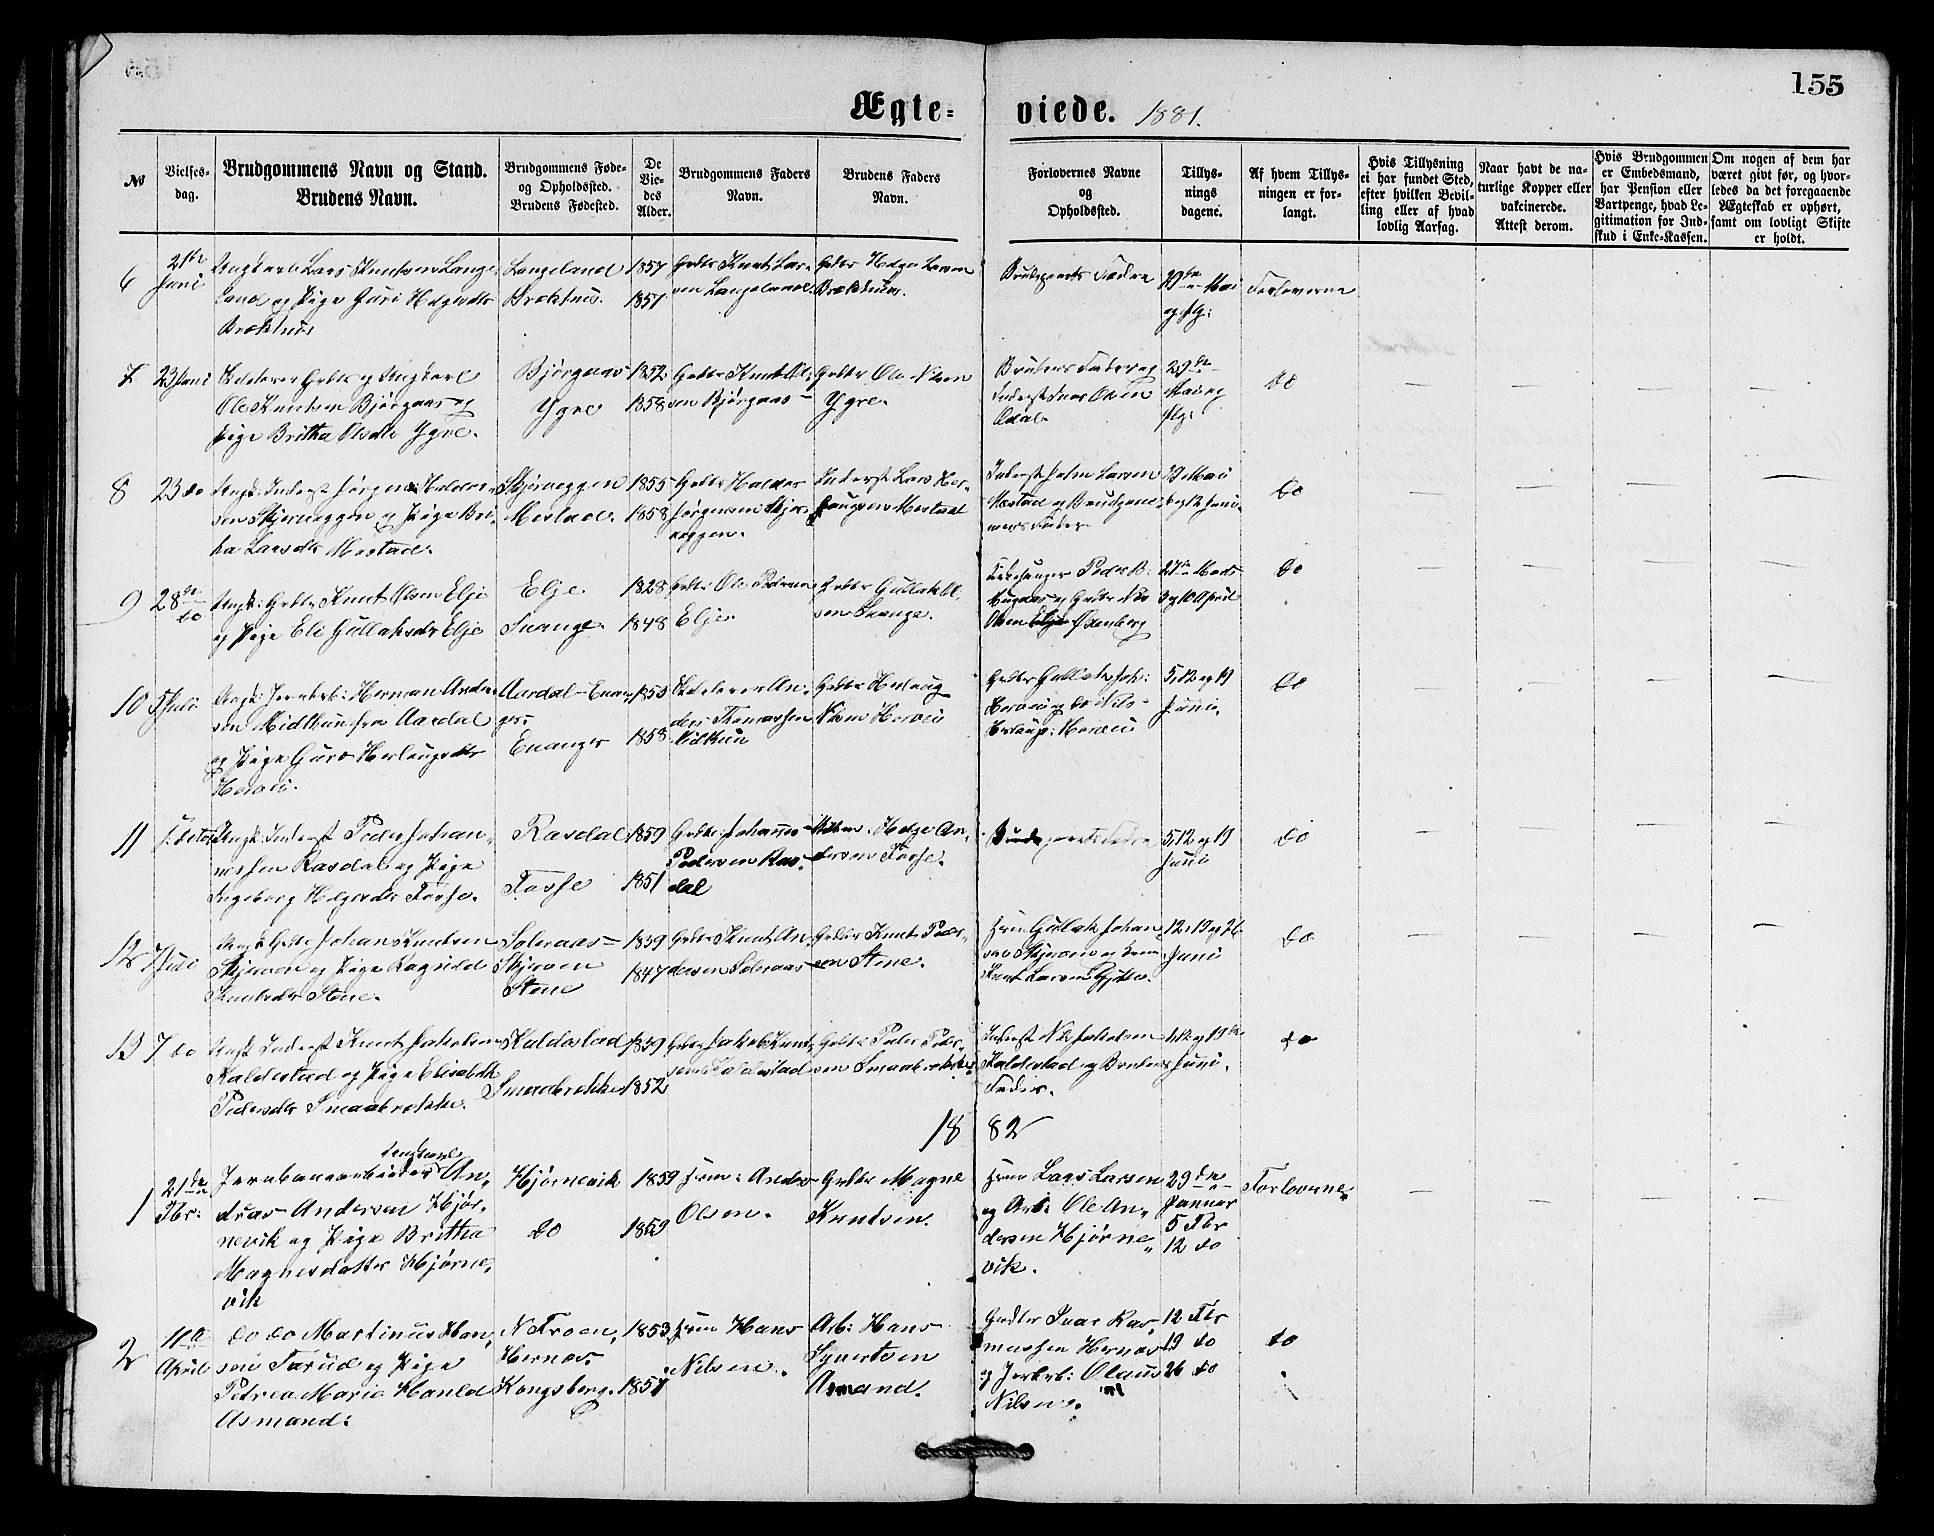 155
Ægte-viede. 1881.
No
Vielses-
dag.
Brudgommens Navn og Stand.
Brudens Navn.
Brudgommens Føde-
og Opholdssted.
Brudens Fødested.
De
Vie-
des
Alder.
Brudgommens Faders
Navn.
Brudens Faders
Navn.
Forlovernes Navne
og
Opholdssted.
Tillys-
nings
dagene.
Af hvem Tillys-
ningen er for-
langt.
Hvis Tillysning
ei har fundet Sted,
efter hvilken Bevil-
ling eller af hvad
lovlig Aarsag.
Naar havt de na-
turlige Kopper eller
vakcinerede.
Attest derom.
Hvis Brudgommen
er Embedsmand,
har Pension eller
Vartpenge, hvad Le-
gitimation for Ind-
skud i Enke-Kassen.
Om nogen af dem har
været givt før, og hvor-
ledes da det foregaaende
Ægteskab er ophørt,
samt om lovligt Skifte
er holdt.
6
Juni
Ungkarl Lars Knutsen Lange
land og Pige Guri Helgesdtr
Langeland
1857
1857
Gbdbr Knut Lar-
sen Langeland.
Gbdbr Helge Larsen
29de Mai
og flg:
Forloverne
7
23 Juni
Gbdbr og Ungkarl
Ole Knutsen Bjørgaas og
Pige Britha Olsdtr Ygre.
Bjørgaas
Ygre
1852
1858
Gbdbr Knut Ol-
sen Bjørgaas
Gbdbr Ole Nilsen
Ygre.
Brudens Fader og
Inderst Olsen
29de
Mai og
flg.
do
8
23 do
Ungk: Inderst Jørgen Haldor-
sen Skjerveggen og Pige Bri-
ta Larsdtr Mestad.
Skjerveggen
Mestad.
1855
1858
Gbdbr Haldor
Jørgensen Skjer-
veggen.
Inderst Lars Her-
laugsen Mestad
Inderst John Larsen
Mestad og Brudgom-
mens Fader
29 Mai
6 og 12 Juni.
do
9
28de
do
Ungk: Gbdbr Knut Olsen Elje
og Pige Eli Gullaksdtr Elje
Elje
Svange.
1828
1848
Gbdbr Ole Pedersen
Elje.
Gbdbr Gullak Ol-
sen Svange.
Kirkesanger Peder B:
og Gbdbr
Olsen
27de Marts
3 og 10 April
do
10
5 Juli
Ungk: Jernbrb: Herman Ander-
sen Midthun fra Aardal
og Pige Guro Herlaugsdtr
Horvei.
Aardal-Evan-
ger
Evanger
1850
1858
An-
ders Thomassen
Midthun
Gbdbr Herlaug
Nilsen Horvei
Gbdbr Gullak Joh:
Horvei og do Nils
Herlaugs: Horvei
5, 12 og 19
Juni.
do
11
Ungk: Inderst Peder Johan-
nessen Rasdal og Pige
Ingeborg Helgesdtr Fosse.
Rasdal
Fosse
1859
1851
Gbdbr: Johannes
Pedersen Ras-
dal
Helge An-
dersen Fosse.
5, 12 og 19
Juni
do
12
7 Juli
Ungk Gbdbr Johan Knutsen
Skjerven og Pige Ragnild
Knutsdtr Stene.
Solraas
Skjerven
Stene
1839
1847
Gbdbr Knut An-
dersen Solraas
Gbdbr Knut Peder-
sen Stene.
Gullak Johan-
sen Skjerven og
Knut Larsen
12, 19 og 26
Juni
do
13
7 do
Ungk Inderst Knut Jakobsen
Kaldestad og Pige Elisabeth
Pedersdtr Smaabrekke.
Kaldestad
Smaabrekke
1839
1852
Gbdbr Jakob Knut-
sen Kaldestad
Gbdbr Peder Peder-
sen Smaabrekke
Inderst Nils Jakobsen
Kaldestad og Brudens
Fader.
5, 12 og 19de
Juni.
do
1882
1
21de
Fbr:
Ungkarl
Jernbanearbeider An-
dreas Andersen Hjør-
nevik og Pige Britha
Magnesdatter Hjørne-
vik
Hjørnevik
do
1859
1859
Anders
Olsen.
Gbdbr Magne
Knutsen.
Lars Larsen
og Arb: Ole An-
dersen Hjørne-
vik.
29de
Januar
5 Fbr
12 do
Forloverne
2
11te
April
do do Martinus Han-
sen Tarud og Pige
Petrea Marie Hauld
Asmand:
N. Froen,
Hernæs
Kongsberg.
1853
1857
Hans
Nilsen.
Arb: Hans
Syvertsen
Asmand.
Gbdbr Ivar Ras-
mussen Hernæs
og Jerbrb: Olaus
Nilsen.
12 Fbr
19 do
26 do
do